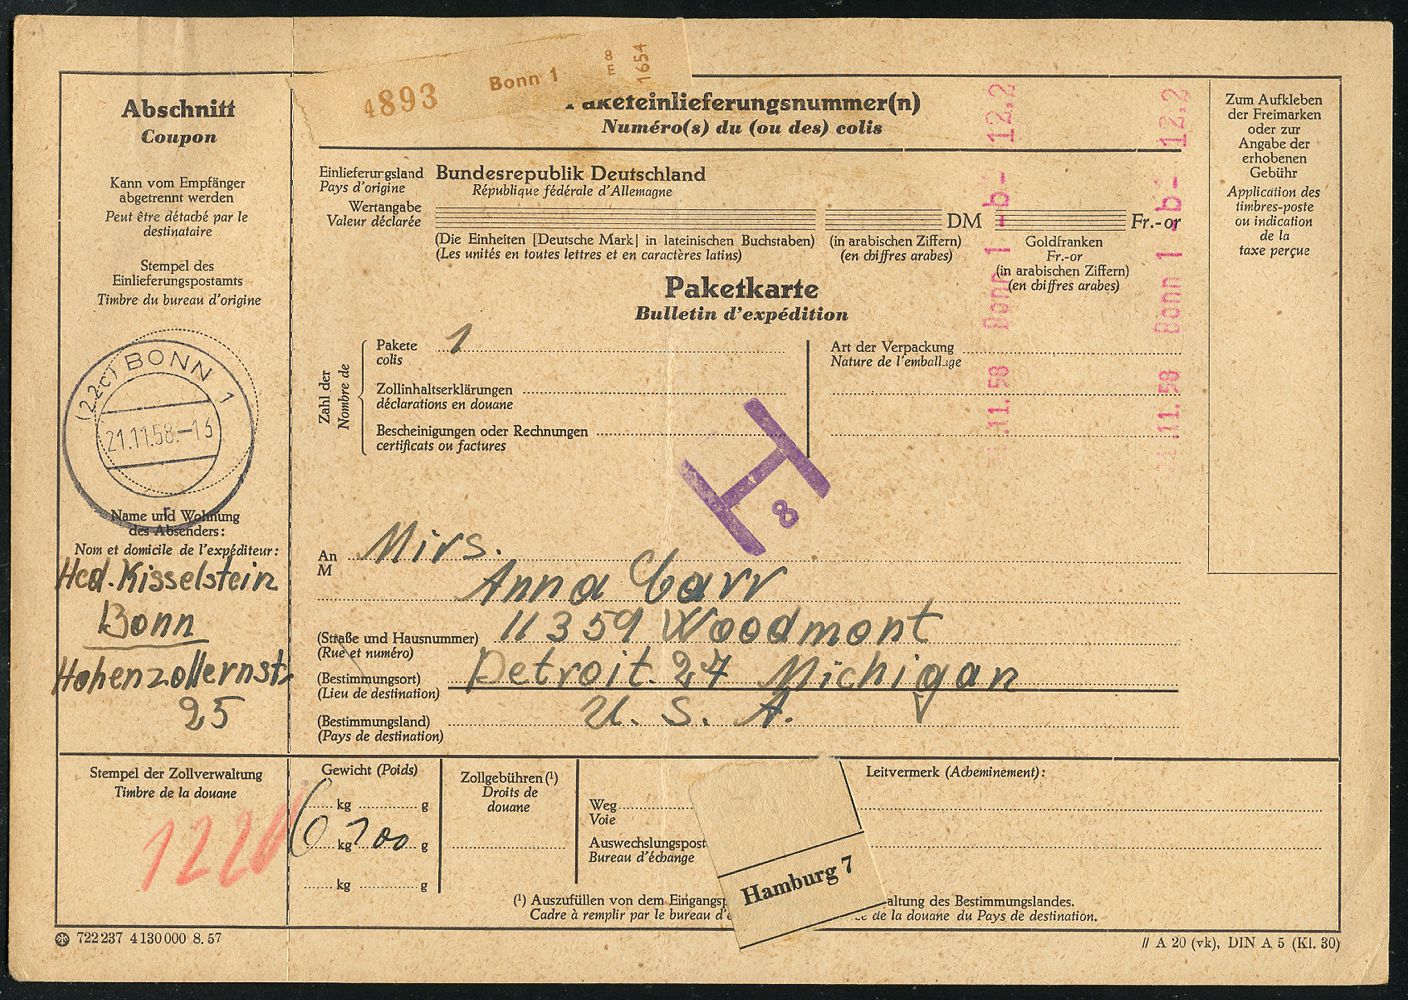 4893 Bonn 1 8 E 1654
Abschnitt
Coupon
Kann vom Empfänger
abgetrennt werden
Peut être détaché par le
destinataire
Stempel des
Einlieferungspostamts
Timbre du bureau d'origine
(22c) BONN 1
21.11.58.-13
Name und Wohnung
des Absenders:
Nom et domicile de l'expéditeur:
Hed. Kisselstein
Bonn
Hohenzollernstr
25
Paketeinlieferungsnummer(n)
Numéro(s) du (ou des) colis
Einlieferungsland Bundesrepublik Deutschland
Pays d'origine République fédérale d'Allemagne
Wertangabe
Valeur déclarée DM Fr.-or
(Die Einheiten [Deutsche Mark] in lateinischen Buchstaben) (in arabischen Ziffern) Goldfranken
(Les unités en toutes lettres et en caractères latins) (en chiffres arabes) Fr.-or
(in arabischen Ziffern)
(en chiffres arabes)
Paketkarte
Bulletin d'expédition
Zahl der
Nombre de
Pakete 1
colis
Zollinhaltserklärungen
déclarations en douane
Bescheinigungen oder Rechnungen
certificats ou factures
Art der Verpackung
Nature de l'emballage
11.58 Bonn 1 -b- 12.2
11.58 Bonn 1 -b- 12.2
Zum Aufkleben
der Freimarken
oder zur
Angabe der
erhobenen
Gebühr
Application des
timbres-poste
ou indication
de la
taxe perçue
H 8
An Mirs.
M
Anna Carr
(Straße und Hausnummer) 11359 Woodmont
(Rue et numéro)
(Bestimmungsort) Detroit. 27 Michigan
(Lieu de destination)
(Bestimmungsland) U. S. A.
(Pays de destination)
Stempel der Zollverwaltung
Timbre de la douane
1220
Gewicht (Poids)
kg g
6 kg 700 g
kg g
Zollgebühren (¹)
Droits de
douane
Weg
Voie
Auswechslungspost
Bureau d'échange
Leitvermerk (Acheminement):
Hamburg 7
(¹) Auszufüllen von dem Eingangsp altung des Bestimmungslandes.
Cadre à remplir par le bureau d'é de la douane du Pays de destination.
722 237 4 130 000 8. 57
// A 20 (vk), DIN A 5 (Kl. 30)